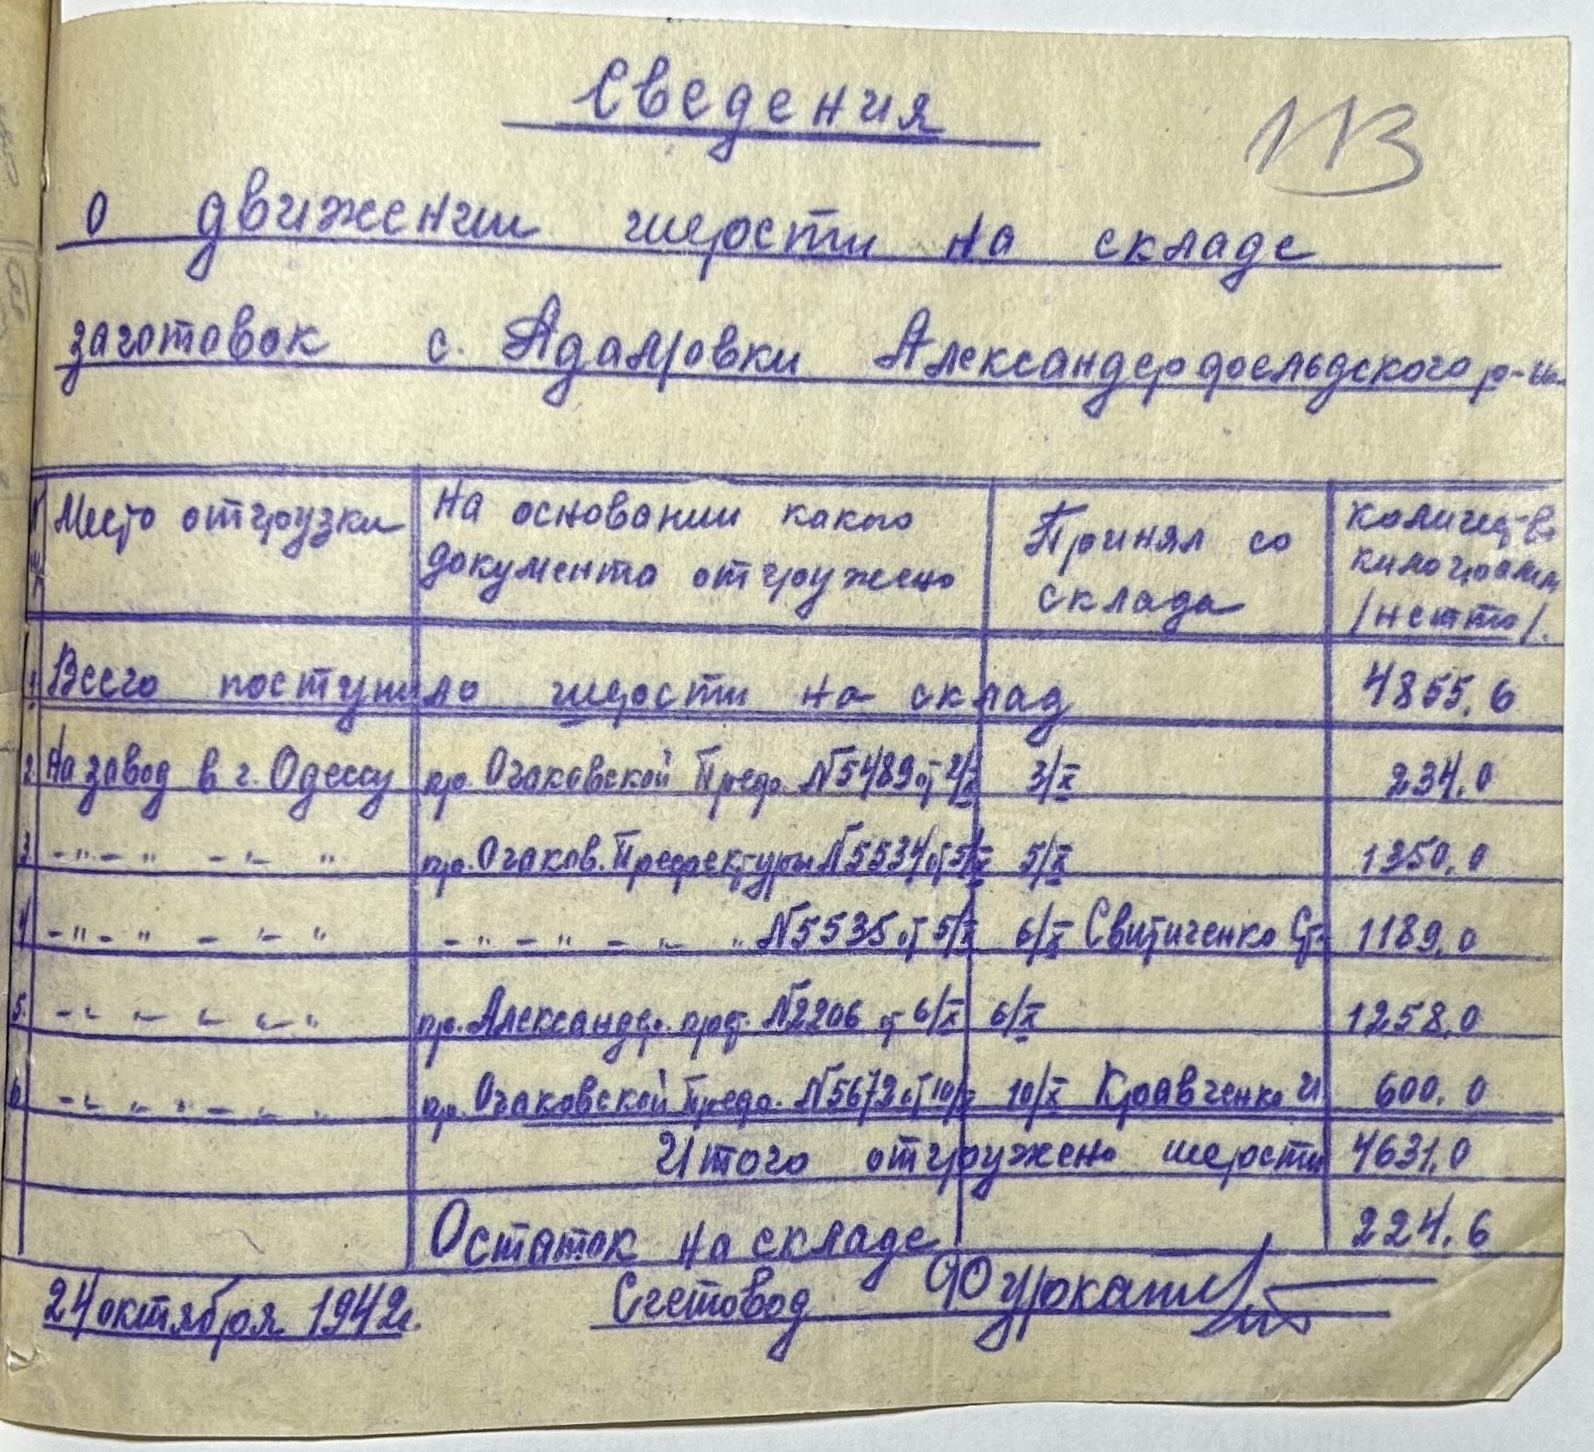 113
Сведения
о движении шерсти на складе
заготовок с. Адамовки Александерфельдского р-на
№ Место отгрузки На основании какого документа отгружено Принял со склада Количеств. килограмм /нетто/.
1. Всего поступило шерсти на склад 4855,6
2. На завод в г. Одессу пр. Очаковской Преф. №5489 от 2/X 3/X 234,0
3. -"- " - "- " пр. Очаков. Префектуры №5534 от 5/X 5/X 1350,0
4. -"- " - "- " - " - " - " - " №5535 от 5/X 6/X Свитиченко Ст. 1189,0
5. -" " " "-" пр. Александр. прф. №2206 от 6/X 6/X 1258,0
6. -" " " - " " пр. Очаковской Преф. №5672 от 10/X 10/X Кравченко И 600,0
Итого отгружено шерсти 4631,0
Остаток на складе 224,6
24 октября 1942 г. Счетовод